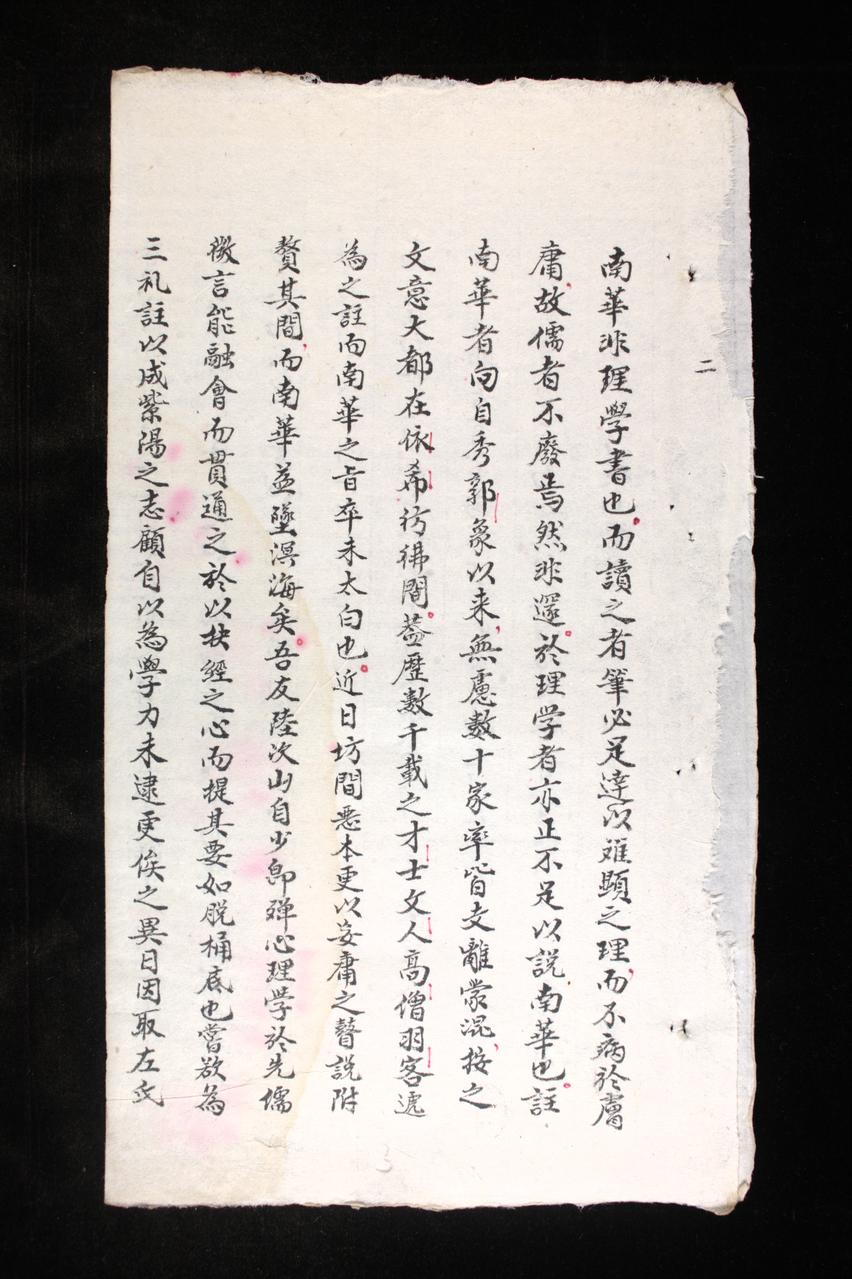 二
南華非理學書也而讀之者筆必足達以难顯之理而不病於膚
庸故儒者不廢焉然非邃於理学者亦正不足以説南華也註
南華者向自秀郭象以来無慮數十家率皆支離蒙混按之
文意大都在依希彷彿間葢歷數千載之才士文人高僧羽客遞
為之註而南華之旨卒未太白也近日坊間惡本更以妄庸之瞽説附
贅其間而南華益墜溟海矣吾友陸次山自少即殫心理学於先儒
微言能融會而貫通之於以扶經之心而提其要如脱桶底也嘗欲為
三礼註以成紫陽之志顧自以為學力未逮更俟之異日因取左氏